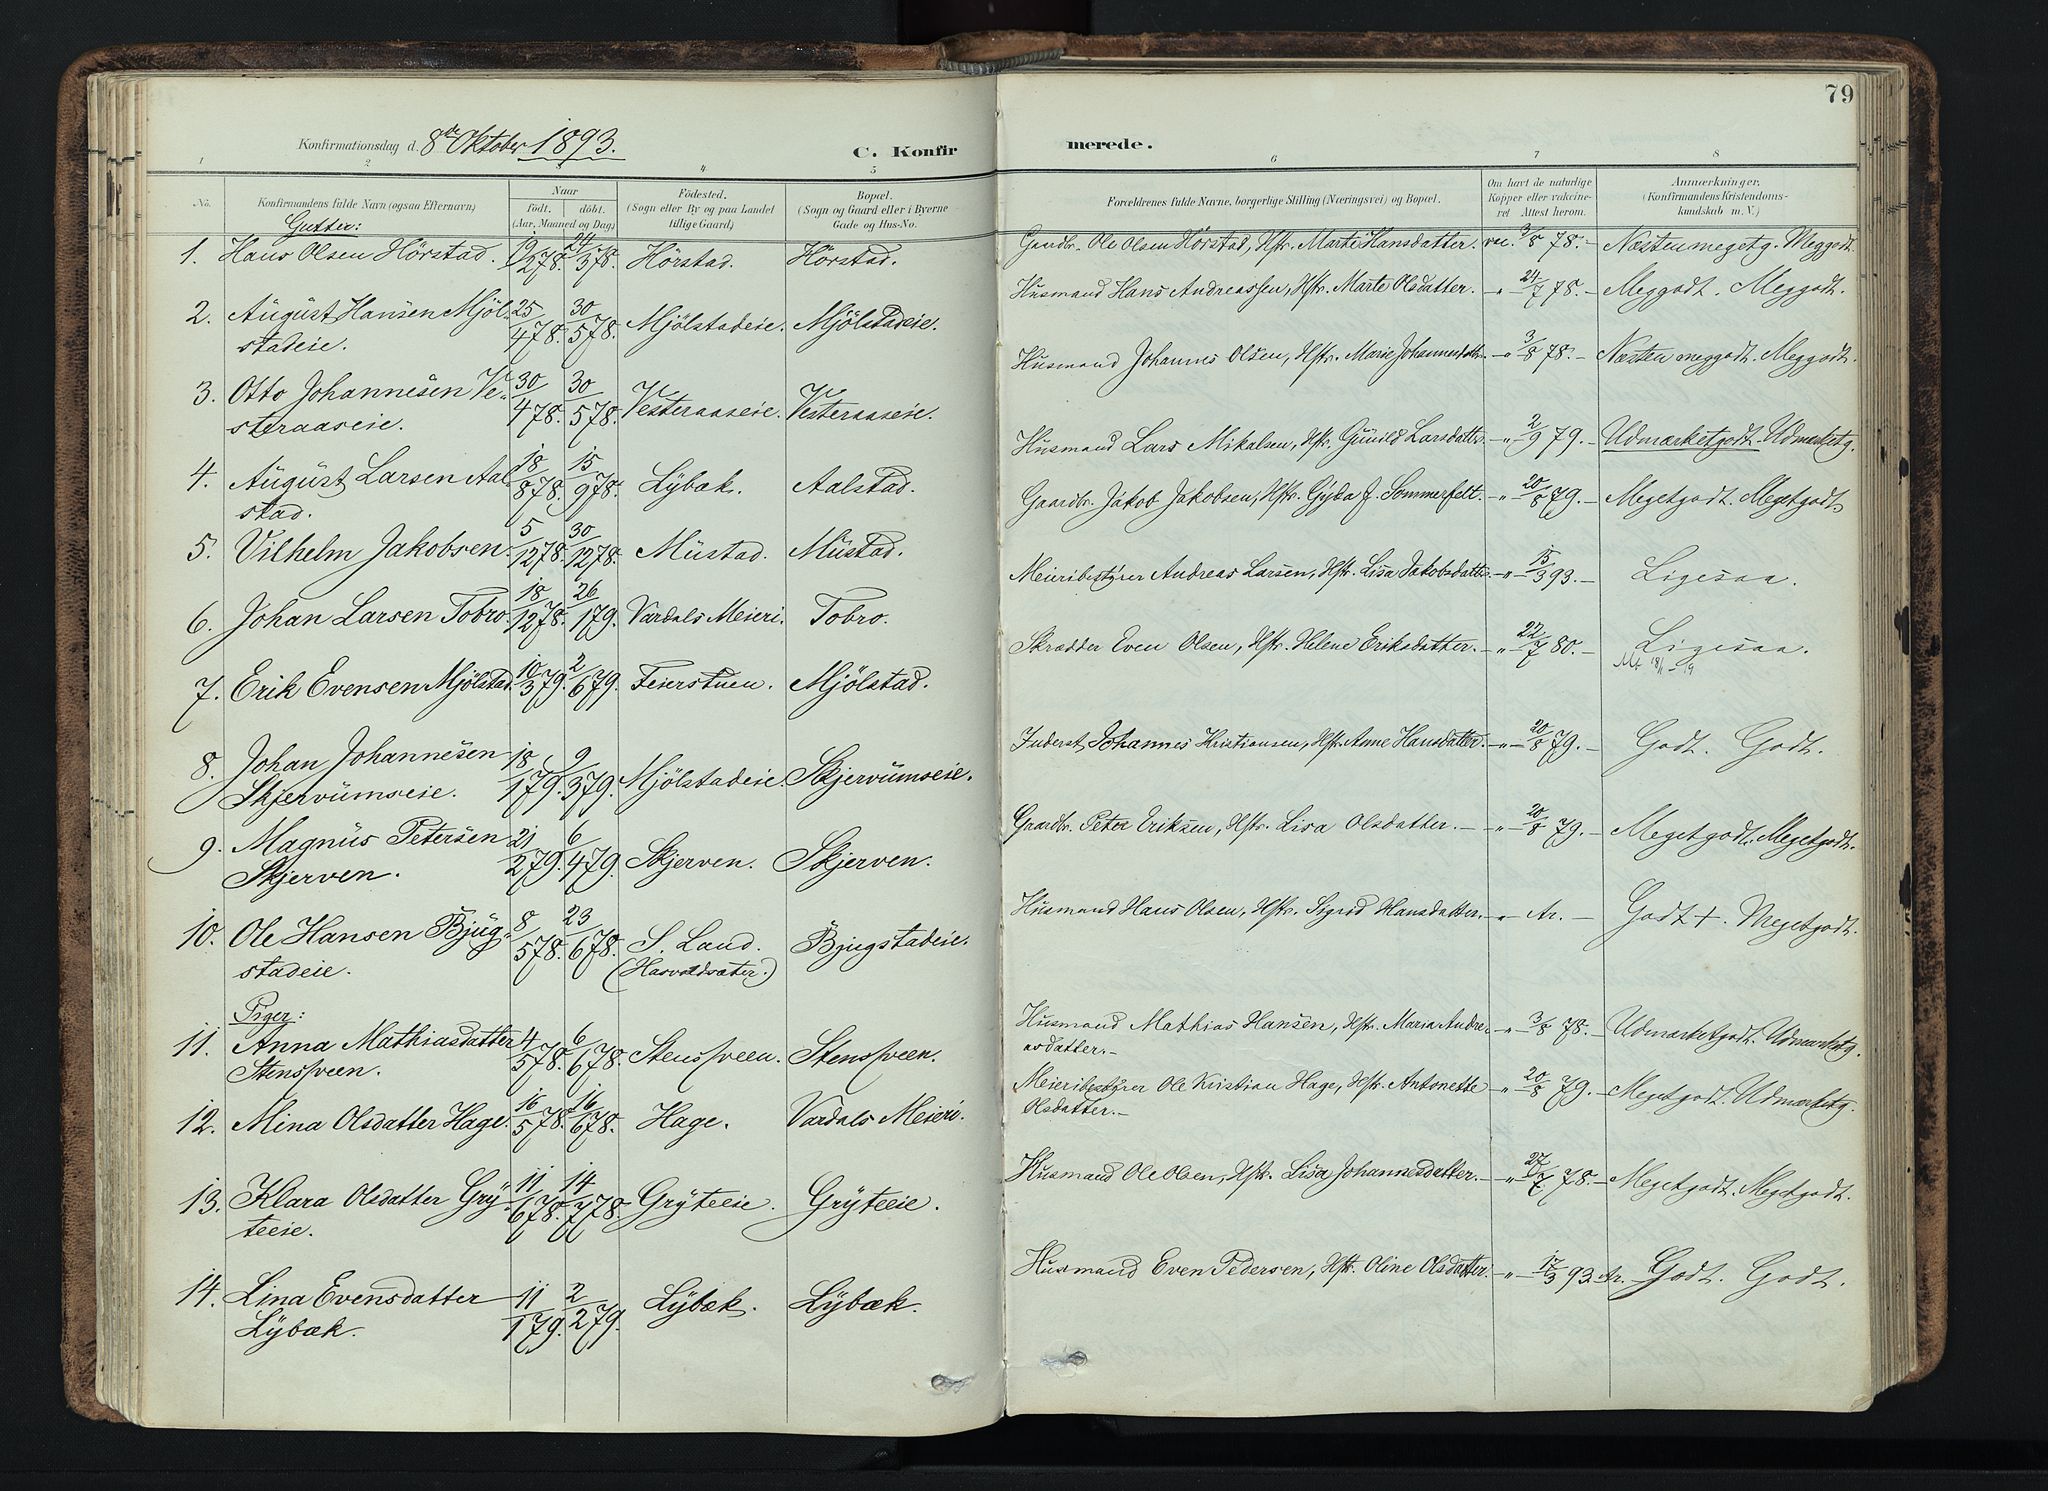 79
Konfirmationsdag d. 8de Oktober 1893.
C. Konfir merede.
1 2 3 4 5 6 7 8
No. Konfirmandens fulde Navn (ogsaa Efternavn) Naar födt. döbt. (Aar, Maaned og Dag) Födested. (Sogn eller By og paa Landet tillige Gaard) Bopæl. (Sogn og Gaard eller i Byerne Gade og Hus-No. Forældrenes fulde Navne, borgerlige Stilling (Næringsvei) og Bopæl. Om havt de naturlige Kopper eller vakcineret. Attest herom. Anmærkninger. (Konfirmandens Kristendomskundskab m. V.)
Gutter:
1. Hans Olsen Hörstad. 19/2 78. 24/3 78. Hörstad. Hörstad. Gaardbr. Ole Olsen Hörstad, Hstr. Marte Hansdatter. vac. 3/8 78. Næsten megetg. Meggodt.
2. August Hansen Mjölstadeie. 25/4 78. 30/5 78. Mjölstadeie. Mjölstadeie. Husmand Hans Andreassen, Hstr. Marte Olsdatter. " 24/7 78. Meggodt. Meggodt.
3. Otto Johannesen Vesteraaseie. 30/4 78. 30/5 78. Vesteraaseie. Vesteraaseie. Husmand Johannes Olsen, Hstr. Marie Johannesdatter " 3/8 78. Næsten meggodt. Meggodt.
4. August Larsen Aalstad. 18/8 78. 15/9 78. Lybæk. Aalstad. Husmand Lars Mikalsen, Hstr. Gunild Larsdatter " 2/9 79. Udmærketgodt. Udmærketg.
5. Vilhelm Jakobsen 5/12 78. 30/12 78. Mustad. Mustad. Gaardbr. Jakob Jakobsen, Hstr. Gyda J. Sommerfelt. " 20/8 79. Megetgodt. Megetgodt.
6. Johan Larsen Tobro. 18/12 78. 26/1 79. Vardals Meieri. Tobro. Meieribestyrer Andreas Larsen, Hstr. Lisa Jakobsdatter " 15/3 93. Ligesaa.
7. Erik Evensen Mjölstad. 10/3 79. 2/6 79. Feierstuen. Mjölstad. Skrædder Even Olsen, Hstr. Helene Eriksdatter. " 22/7 80. Ligesaa.
8. Johan Johannesen Skjervumseie. 18/1 79. 9/3 79. Mjölstadeie. Skjervumseie. Inderst Johannes Kristiansen, Hstr. Anne Hansdatter. " 20/8 79. Godt. Godt.
9. Magnus Petersen Skjerven. 21/2 79. 6/4 79. Skjerven. Skjerven. Gaardbr. Peter Eriksen, Hstr. Lisa Olsdatter. " 20/8 79. Megetgodt. Megetgodt.
10. Ole Hansen Bjugstadeie. 8/5 78. 23/6 78. S. Land. (Hasvoldsæter.) Bjugstadeie. Husmand Hans Olsen, Hstr. Sigrid Hansdatter. " Ar. Godt +. Megetgodt.
Piger:
11. Anna Mathiasdatter Stenssveen. 4/5 78. 6/6 78. Stenssveen. Stenssveen. Husmand Mathias Hansen, Hstr. Maria Andreasdatter. " 3/8 78. Udmærketgodt. Udmærketg.
12. Mina Olsdatter Hage. 16/5 78. 16/6 78. Hage. Vardals Meieri. Meieribestyrer Ole Kristian Hage, Hstr. Antonette Olsdatter. " 20/8 79. Megetgodt. Udmærketg.
13. Klara Olsdatter Gryteeie. 11/6 78. 14/7 78. Gryteeie. Gryteeie. Husmand Ole Olsen, Hstr. Lisa Johannesdatter. " 27/7 78. Megetgodt. Megetgodt.
14. Lina Evensdatter Lybæk. 11/1 79. 2/2 79. Lybæk. Lybæk. Husmand Even Pedersen, Hstr. Oline Olsdatter. " 17/3 93. Ar. Godt. Godt.